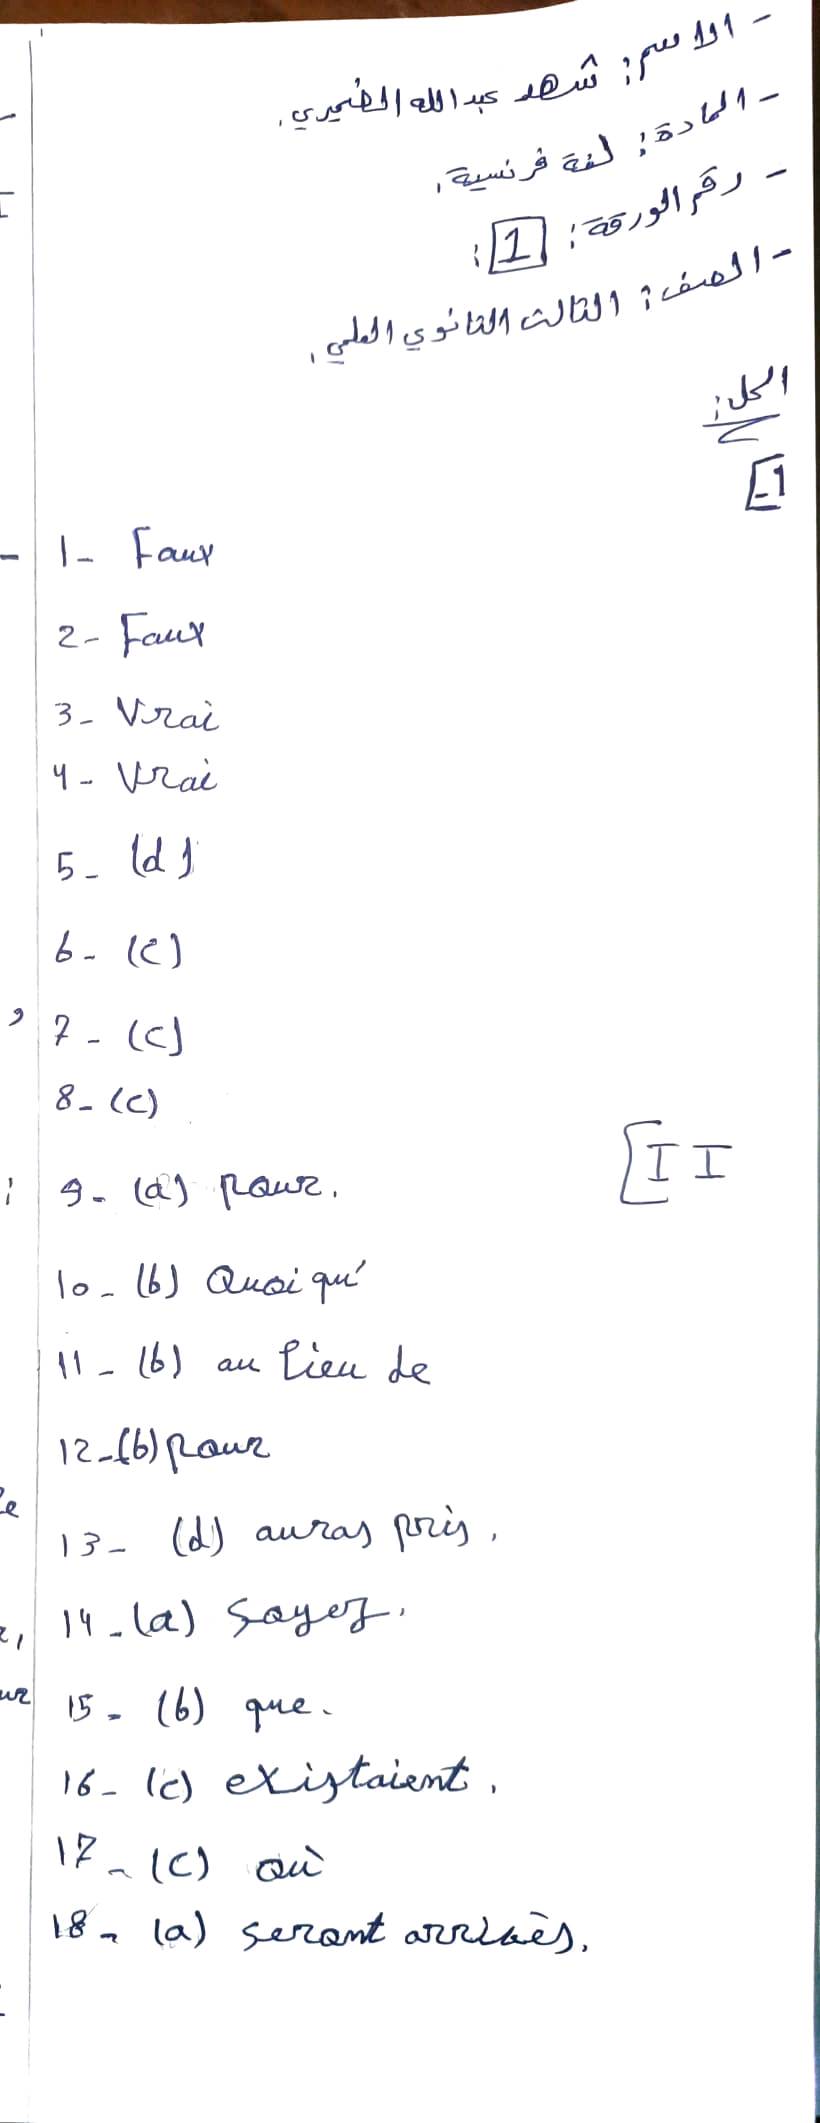 - الاسم: شهد عبدالله الضميري.
- المادة: لغة فرنسية.
- رقم الورقة: 1:
- الصف: الثالث الثانوي العلمي.
الحل:
1-
1- Faux
2- Faux
3- Vrai
4- Vrai
5- (d)
6- (c)
7- (c)
8- (c)
II
9- (a) pour.
10- (b) Quoiqu'
11- (b) au lieu de
12- (b) pour
13- (d) auras pris.
14- (a) Soyez.
15- (b) que.
16- (c) existaient.
17- (c) où
18- (a) seront arrivès.